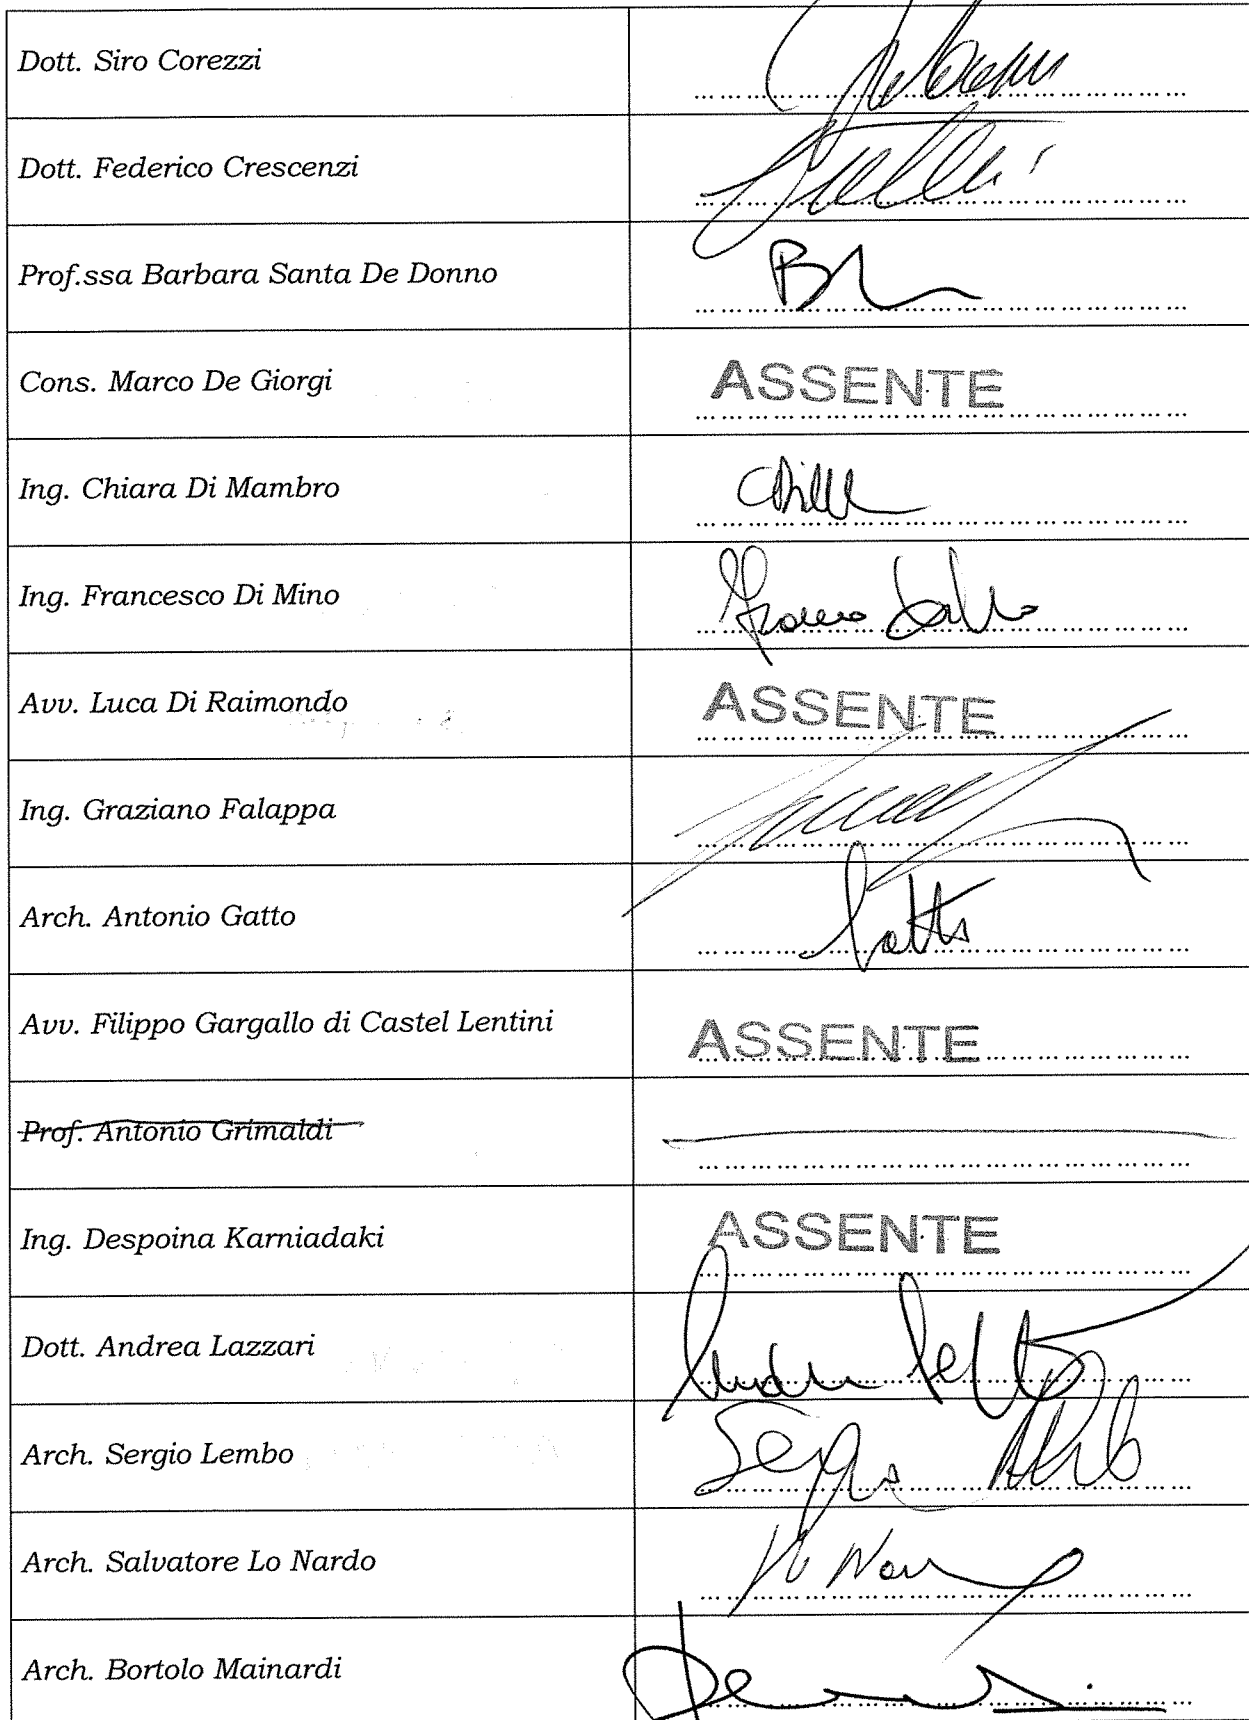 Dott. Siro Corezzi
Dott. Federico Crescenzi
Prof.ssa Barbara Santa De Donno
Cons. Marco De Giorgi ASSENTE
Ing. Chiara Di Mambro
Ing. Francesco Di Mino
Avv. Luca Di Raimondo ASSENTE
Ing. Graziano Falappa
Arch. Antonio Gatto Gatto
Avv. Filippo Gargallo di Castel Lentini ASSENTE
Prof. Antonio Grimaldi
Ing. Despoina Karniadaki ASSENTE
Dott. Andrea Lazzari
Arch. Sergio Lembo Sergio
Arch. Salvatore Lo Nardo
Arch. Bortolo Mainardi